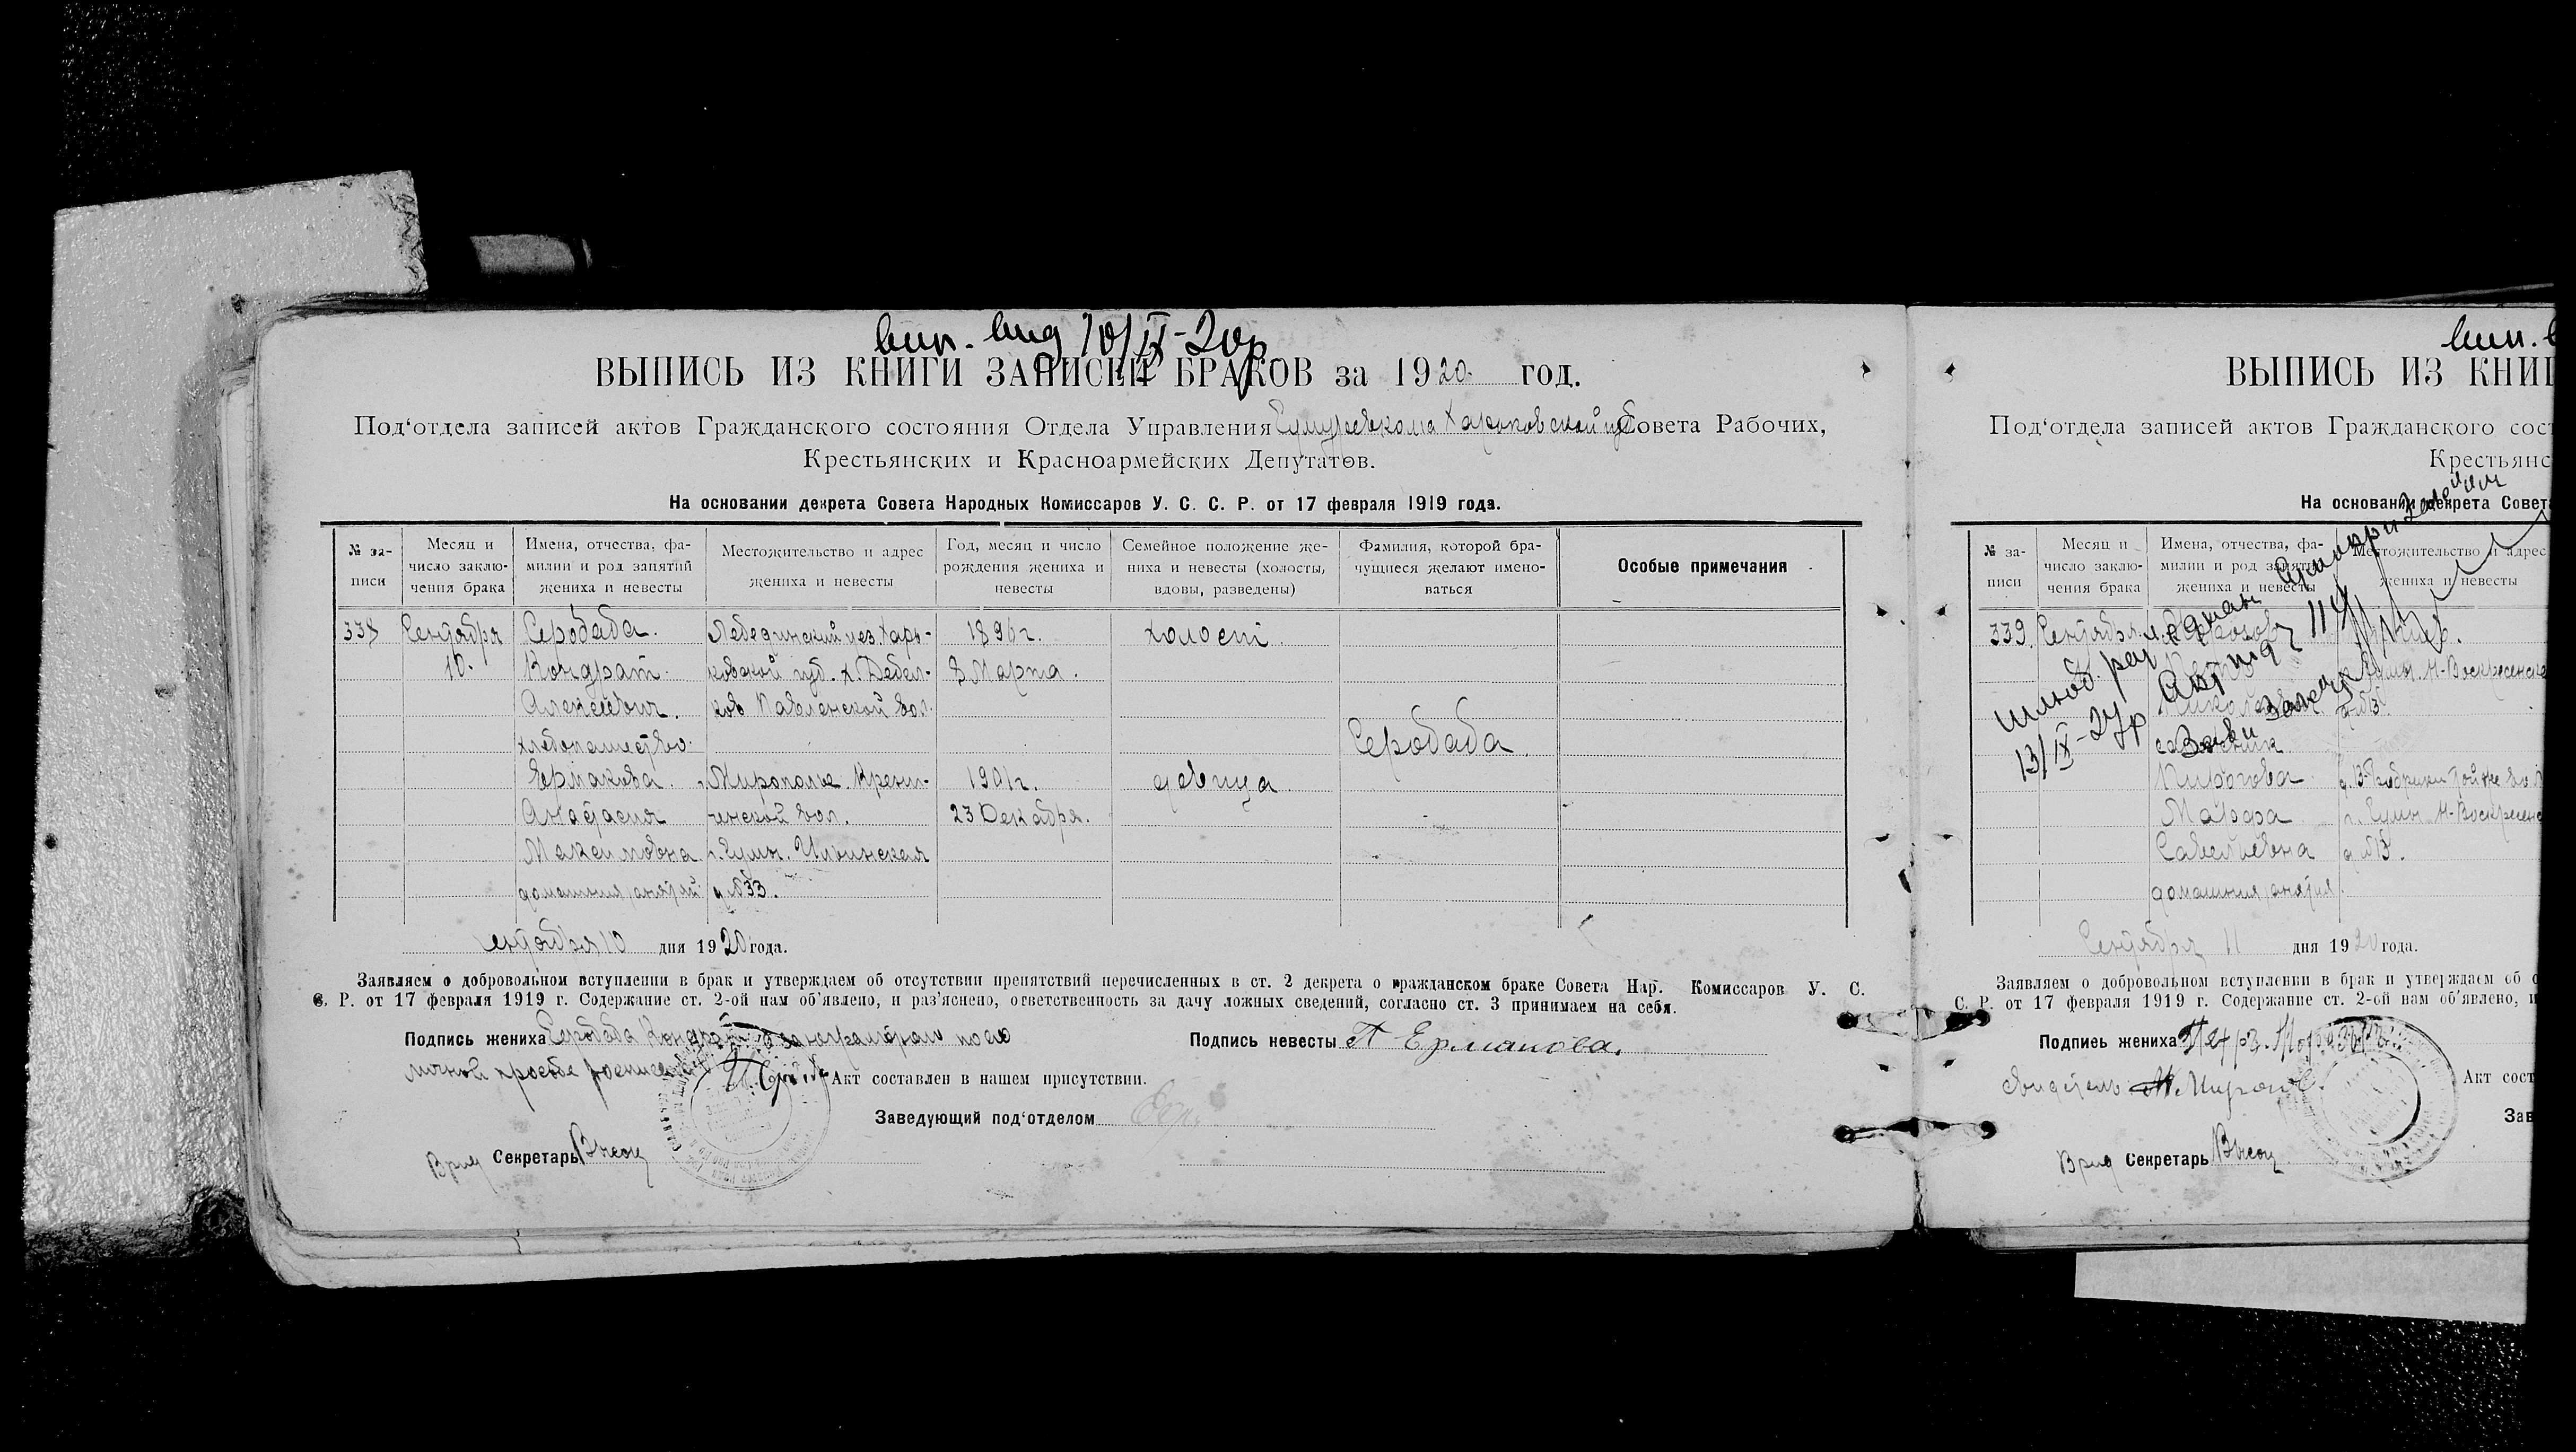 вип. вид 10/IX-20р
ВЫПИСЬ ИЗ КНИГИ ЗАПИСИ БРАКОВ за 1920 год.
Под‘отдела записей актов Гражданского состояния Отдела Управления Сумуревкома Харьковской губ Совета Рабочих,
Крестьянских и Красноармейских Депутатов.
На основании декрета Совета Народных Комиссаров У. С. С. Р. от 17 февраля 1919 года.
№ за-
писи
Месяц и
число заклю-
чения брака
Имена, отчества, фа-
милии и род занятий
жениха и невесты
Местожительство и адрес
жениха и невесты
Год, месяц и число
рождения жениха и
невесты
Семейное положение же-
ниха и невесты (холосты,
вдовы, разведены)
Фамилия, которой бра-
чущиеся желают имено-
ваться
Особые примечания
338 Сентября Серобаба. Лебединский уез. Харь- 1896 г. холост
10. Кондрат ковской губ. х. 8 Марта.
Алексеевич. Павленской вол.
хлебопашество. Серобаба
Ермакова Мирополье 1901 г. девица
Анастасия вол. 23 Декабря.
Максимовна г. Сумы. Ильинская
домашния занятий д. №33.
сентября 10 дня 1920 года.
Заявляем о добровольном вступлении в брак и утверждаем об отсутствии препятствий перечисленных в ст. 2 декрета о гражданском браке Совета Нар. Комиссаров У. С.
С. Р. от 17 февраля 1919 г. Содержание ст. 2-ой нам об‘явлено, и раз‘яснено, ответственность за дачу ложных сведений, согласно ст. 3 принимаем на себя.
Подпись жениха Серобаба Кондрат а за неграмотного по его
личной просьбе расписался
Подпись невесты А Ермакова.
Акт составлен в нашем присутствии.
Заведующий под‘отделом
Врид Секретарь
вип. в
ВЫПИСЬ ИЗ КНИГ
Под‘отдела записей актов Гражданского сост
Крестьянс
На основании декрета Совета
№ за-
писи
Месяц и
число заклю-
чения брака
Имена, отчества, фа-
милии и род занятий
жениха и невесты
Местожительство и адрес
жениха и невесты
339. Сентября
г. Сумы. Н-Воскресенск
Акт
13/IX-27р
Пирогова
Марфа г. Сумы Н-Воскресенс
Савельевна д. №13.
домашния занятия
Сентября 11 дня 1920 года.
Заявляем о добровольном вступлении в брак и утверждаем об о
С. Р. от 17 февраля 1919 г. Содержание ст. 2-ой нам об‘явлено, и
Подпись жениха
Свидетель
Акт сост
Зав
Врид Секретарь